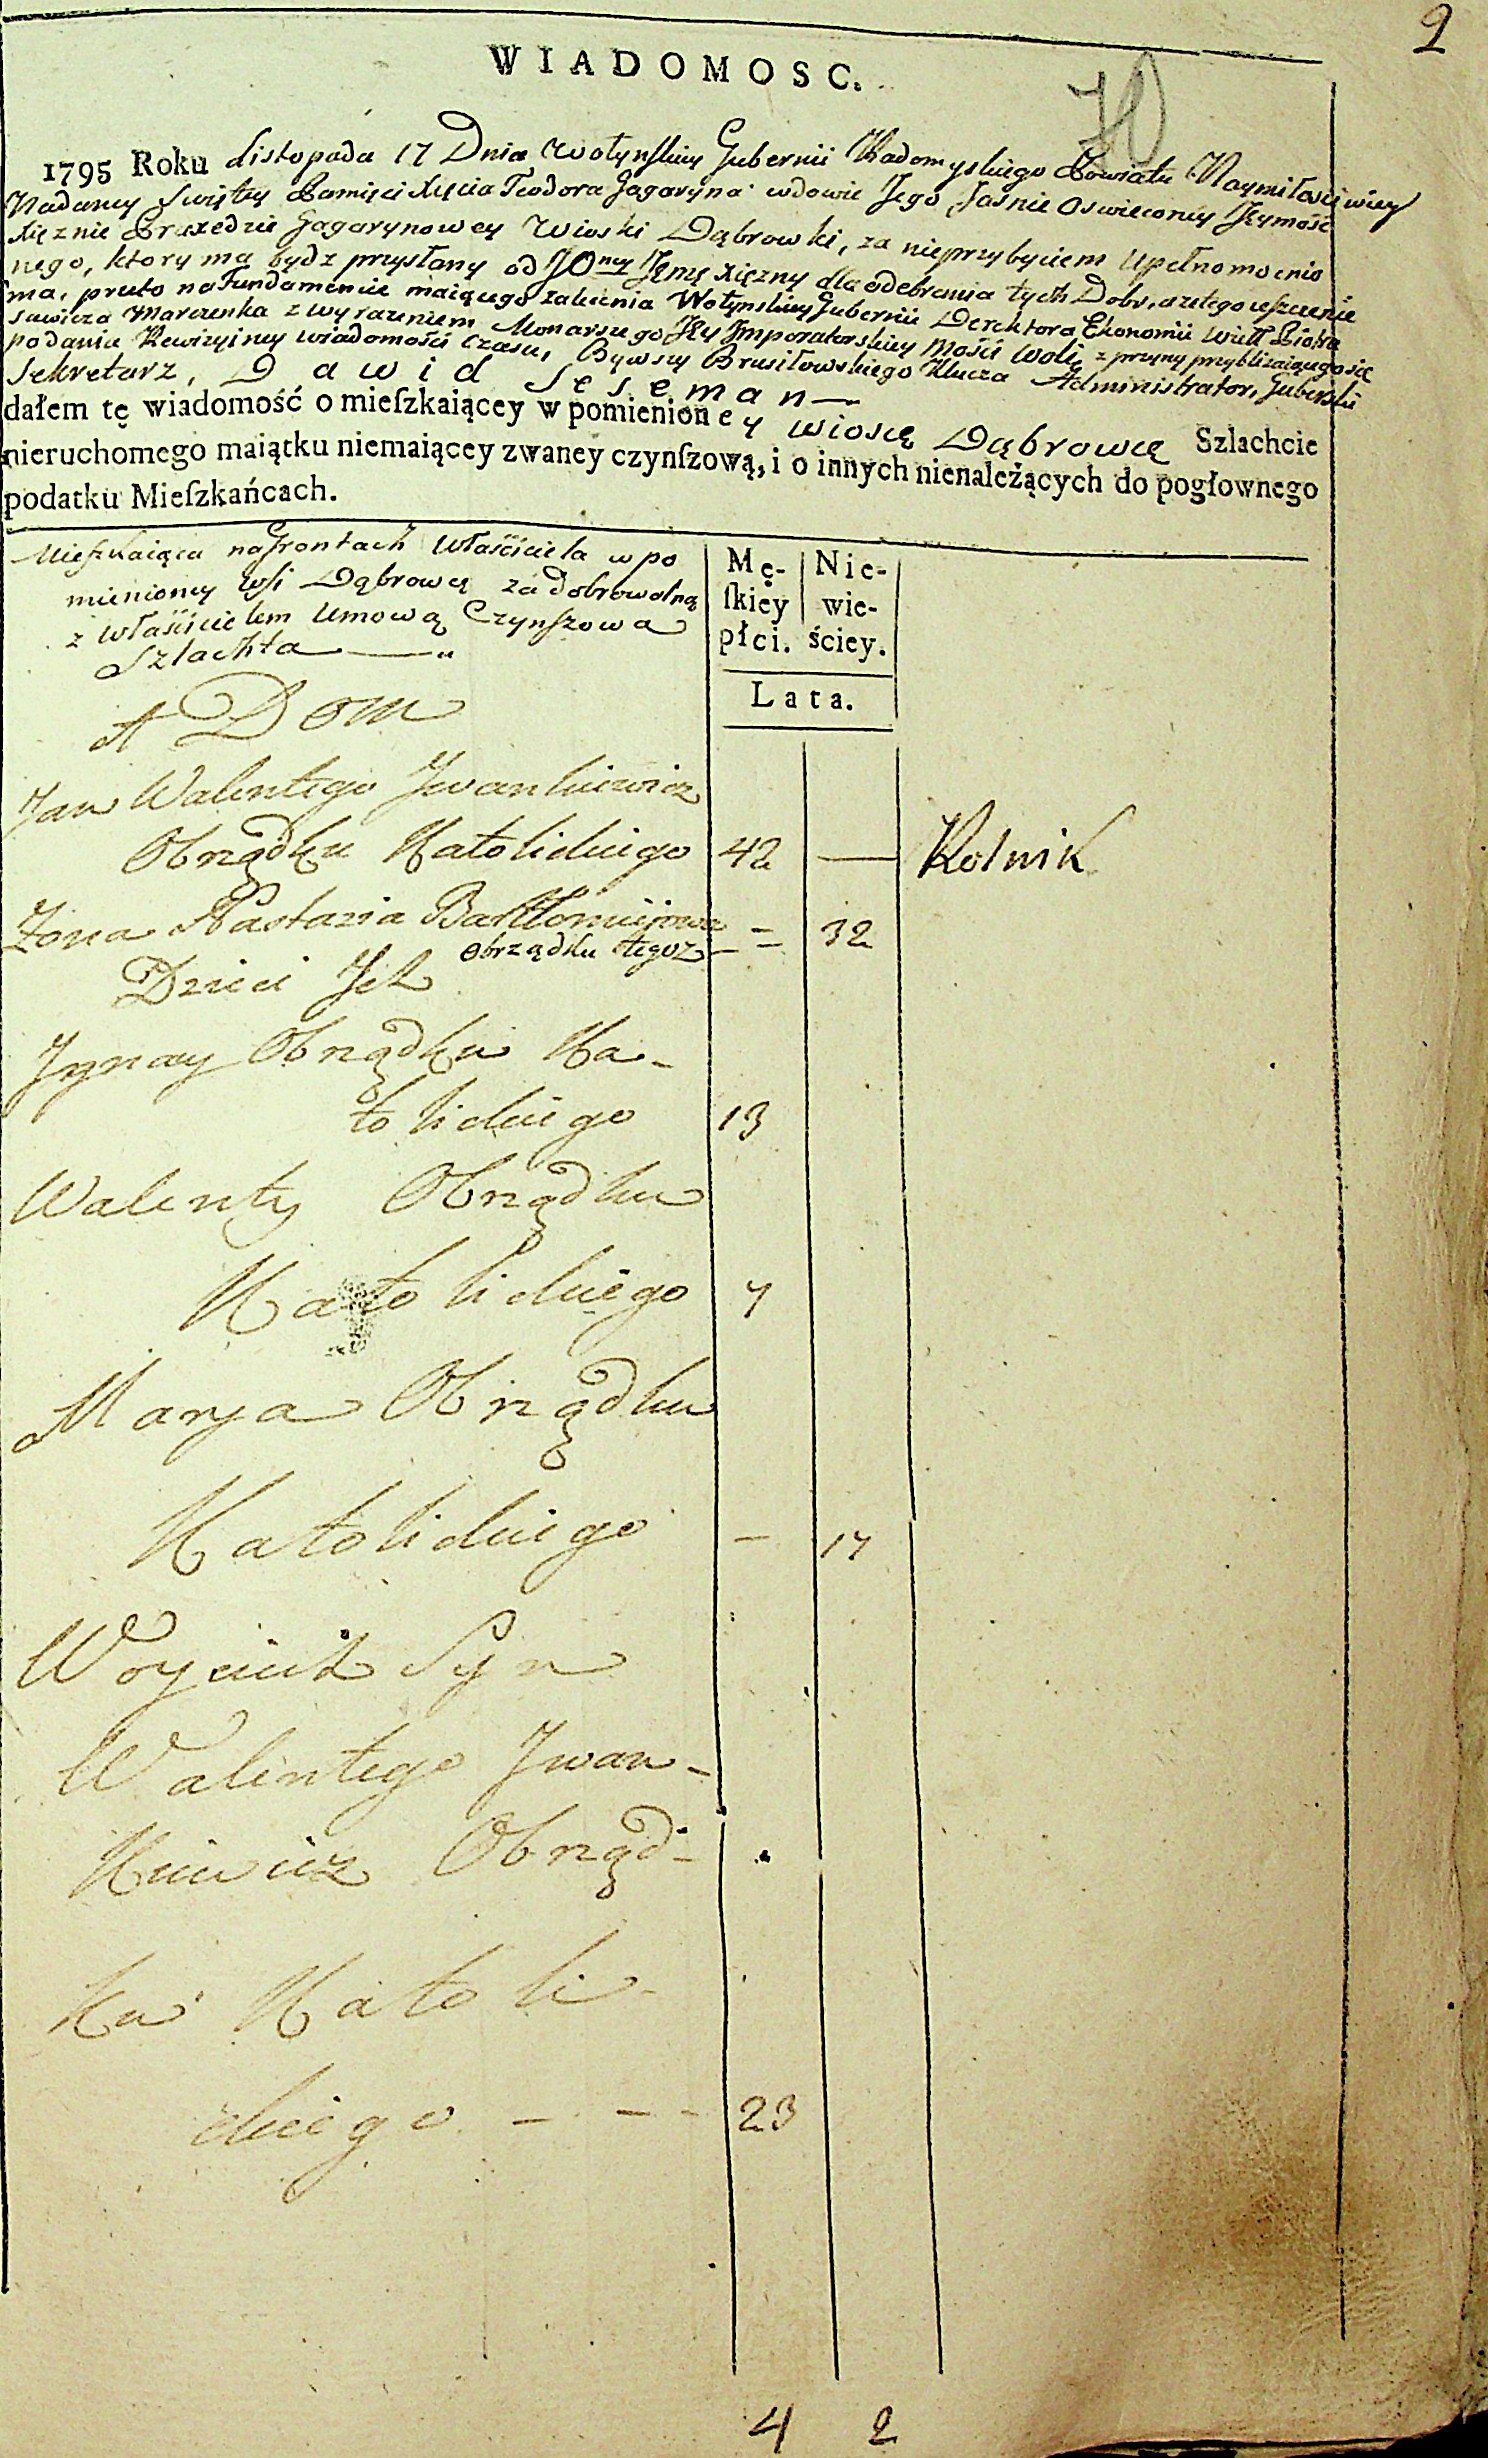 2
WIADOMOSC.
1795 Roku Listopada 17 Dnia Wołynskiey Gubernii Radomyskiego Powiatu Naymiłosciwiey
Nadaney Swiętey Pamięci Xięcia Teodora Gagaryna wdowie Jego Jaśnie Oswieconey Jeymość
Xiężnie Praxedzie Gagarynowey Wioski Dąbrowki, za nieprzybyciem Upełnomocnio
nego, ktory ma bydz przysłany od JOney Jeymę xiężny dla odebrania tych Dobr, a że tego ieszcze nie
ma, przeto na Fundamencie maiącego zalecenia Wołynskiey Gubernii Derektora Ekonomii Piotra
sawicza Marczenka z wyrazeniem Monarszego Jey Imperatorskiey Mości woli, z przyny przybliżaiącego się
podania Rewizyiney wiadomości czasu, Bywszy Brusiłowskiego Klucza Administrator, Guberski
Sekretarz, Dawid Seseman —
dałem tę wiadomość o mieſzkaiącey w pomienioney wioscę Dąbrowcę Szlachcie
nieruchomego maiątku niemaiącey zwaney czynſzową, i o innych nienależących do pogłownego
podatku Mieſzkańcach.
Mieszkaiąca na Grontach Właściciela w po
mienioney Wsi Dąbrowcę za dobrowolną
z właścicielem Umową Czynszowa
Szlachta —
Mę- Nie-
ſkiéy wie-
płci. ściey.
Lata.
A Dom
Jan Walentego Iwankiewicz
Obrządku Katolickiego 42 — Rolnik
Żona Nastazia Bartłomiejowa
obrządku tegoz — = 32
Dzieci Ich
Ignacy Obrządku Ka-
tolickiego 13
Walenty Obrządku
Katolickiego 7
Marya Obrządku
Katolickiego — 17
Woyciech Syn
Walentego Iwan-
kiewicz Obrząd-
ku Katoli-
ckiego - - - 23
4 2